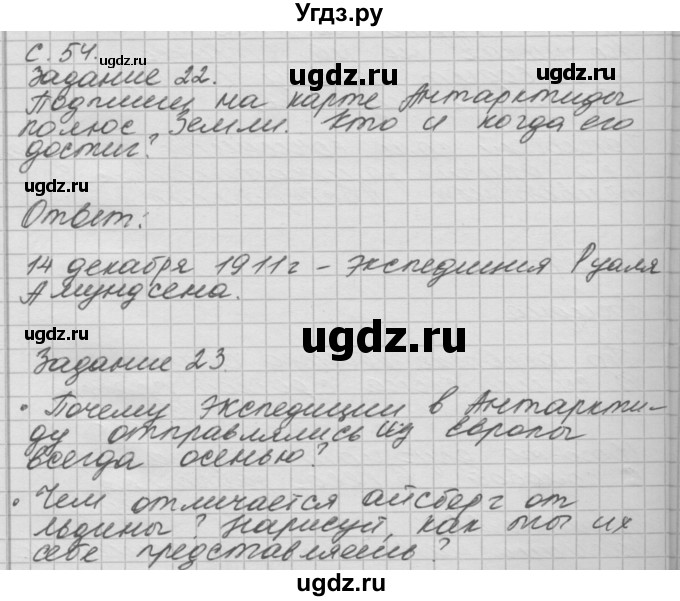 Угдз.ру
С. 54.
ugdz.ru
Задание 22.
ugdz.ru
Подпиши на карте Антарктиды
полюс Земли. Кто и когда его
достиг?
ugdz.ru
ugdz.ru
Ответ:
14 декабря 1911г - экспедиция Руаля
Амундсена.
ugdz.ru
ugdz.ru
ugdz.ru
Задание 23.
• Почему экспедиции в Антаркти-
ду отправлялись из Европы
всегда осенью?
ugdz.ru
• Чем отличается айсберг от
льдины? Нарисуй, как ты их
себе представляешь?
ugdz.ru